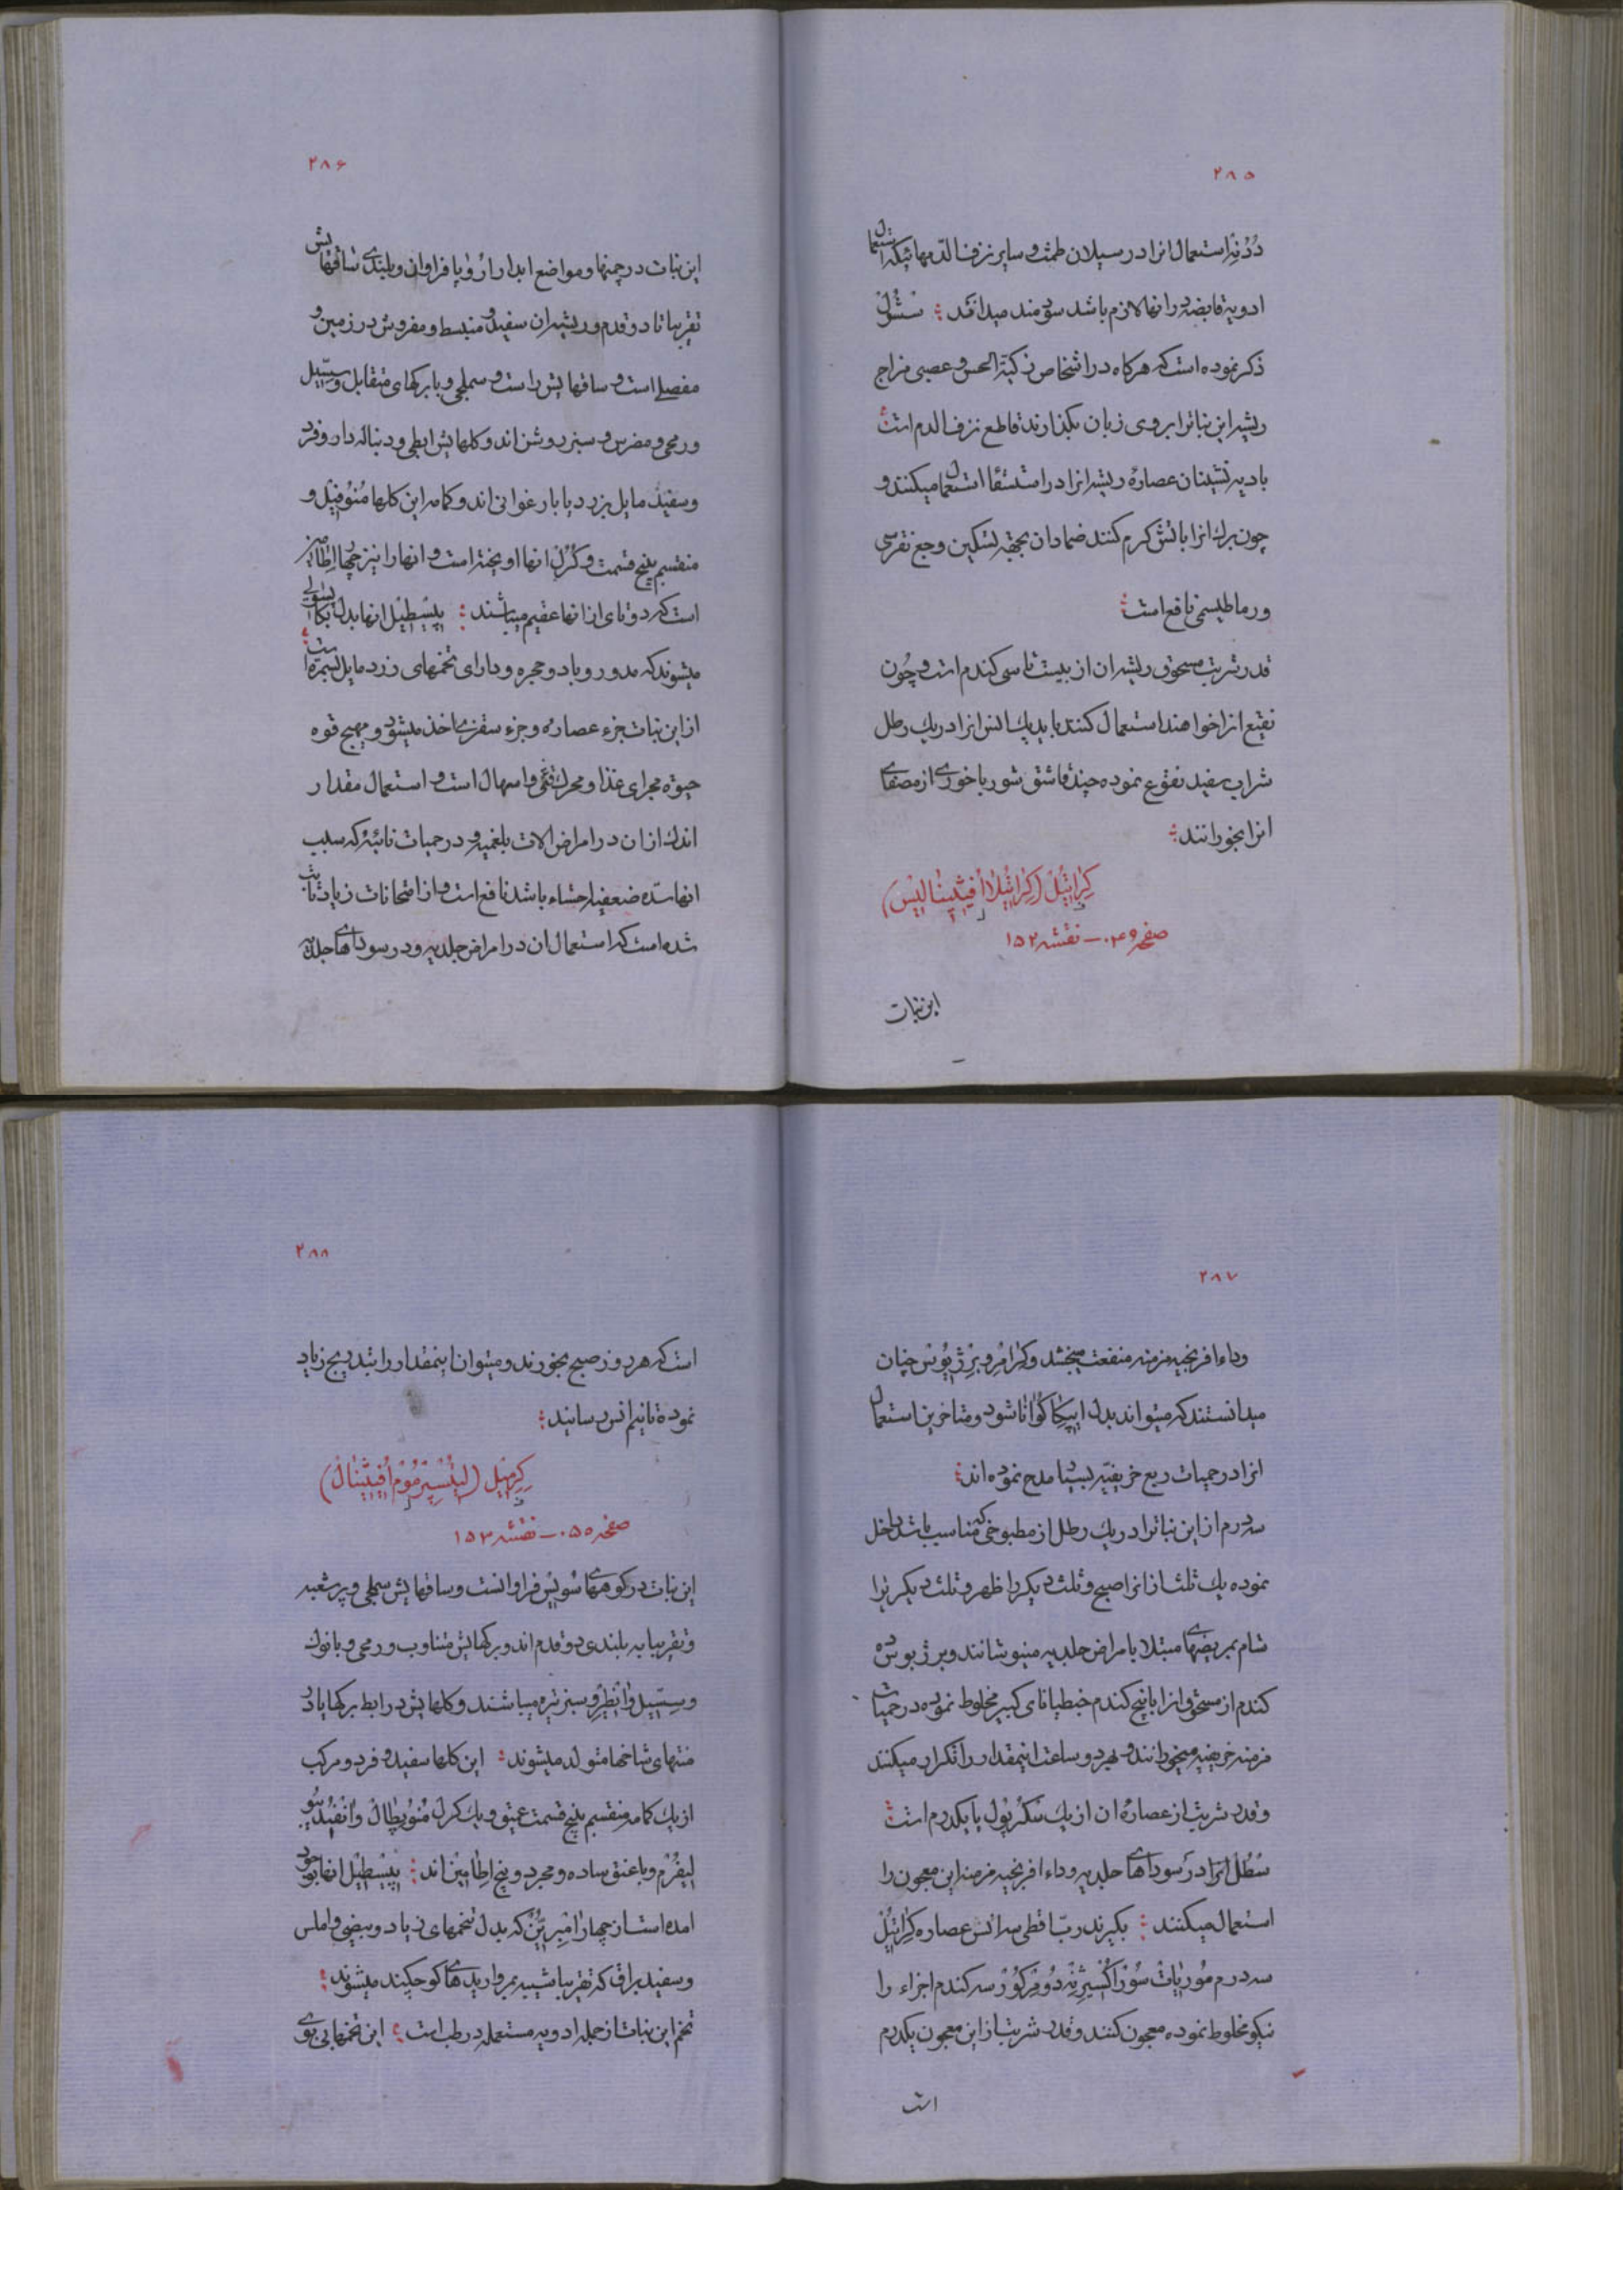 ۲۸۵
دُدُنِه استعمال انرا در سیلان طمث و سایر نزف الدمهائیکه استعمال
ادویه قابضه در انها لازم باشد سودمند میدانند
ذکر نموده است که هرکاه در اشخاص زکیة الحس و عصبی مزاج
ریشه این نباترا بروی زبان بکذارند قاطع نزف الدم است
بادیه نشینان عصارهٔ ریشه انرا در استسقا استعمال میکنند و
چون برك انرا باتش کرم کنند ضماد ان بجهة تسکین وجع نقرسی
و رماطیسمی نافع است
قدر شربت مسحوق ریشه ان از بیست تا سی کندم است و چون
نقیع انرا خواهند استعمال کنند باید یك انس انرا در یك رطل
شراب سفید نقوع نموده چند قاشق شورباخوری از مصفای
انرا بخورانند
کِراتیُل (کِراتیُلا اُفیثینالیس)
صفحه ۰۴۹ – نقشه ۱۵۲
این نبات
۲۸۶
این نبات در چمنها و مواضع ابدار ارُوپا فراوان و بلندی ساقهایش
تقریبا تا دو قدم و ریشه ان سفید و منبسط و مفروش در زمین و
مفصلی است و ساقهایش راست و سملجی و با برکهای متقابل و سِسّیل
و رمحی و مضرس و سبز روشن اند و کلهایش ابطی و دنباله دار و فرد
و سفید مایل بزرد یا بارغوانی اند و کامه این کلها مُنُوفیِل و
منقسم بپنج قسمت و کُرُل انها اویخته است و انها را نیز چهار اِطامیز
است که دو تای از انها عقیم میباشند پیسْطیْل انها بدل بکاپسولی
میشوند که مدور و با دو حجره و دارای تخمهای زرد مایل بسمره است
از این نبات جزء عصاره و جزء سقزی اخذ میشود و مهیج قوه
حیوة مجرای غذا و محرك قی و اسهال است و استعمال مقدار
اندك از ان در امراض الات بلغمیه و در حمیات نائبه که سبب
انها سده ضعفیه احشاء باشد نافع است و از امتحانات زیاد ثابت
شده است که استعمال ان در امراض جلدیه و در سوداهای جلدیه
۲۸۷
وداء افرنجیه مزمنه منفعت میبخشد و کِرامِر و بِرژیُوس چنان
میدانستند که میتواند بدل ایپکاکُوانا شود و متاخرین استعمال
انرا در حمیات ربع خریفیه بسیار مدح نموده اند
سه درم از این نباترا در یك رطل از مطبوخی که مناسب باشد داخل
نموده یك ثلث از انرا صبح و ثلث دیکر را ظهر و ثلث دیکر را
شام بمریضهای مبتلا بامراض جلدیه مینوشانند و برژیوس ده
کندم از مسحوق انرا با پنج کندم خنطیانای کبیر مخلوط نموده در حمیات
مزمنه خریفیه میخورانند و بهر دو ساعت اینمقدار را تکرار میکنند
و قدر شربت از عصارهٔ ان از یك سکرُپول یا یکدرم است
سُطُل انرا در سوداهای جلدیه و داء افرنجیه مزمنه این معجون را
استعمال میکنند بکیرند ربّ اقطی سه انس عصاره کِراتیُل
سه درم مُوریات سُوراُکسیژِنِه دُو مِرکور سه کندم اجزاء را
نیکو مخلوط نموده معجون کنند و قدر شربت از این معجون یکدرم
است
۲۸۸
است که هر روز صبح بخورند و میتوان اینمقدار را بتدریج زیاد
نموده تا نیم انس رسانند
کِرِمیْل (لیثُسْپِرمُوم اُفیثینال)
صفحه ۰۵۰ – نقشه ۱۵۳
این نبات در کوههای سُویِس فراوانست و ساقهایش سملجی و پر شعبه
و تقریبا به بلندی دو قدم اند و برکهایش متناوب و رمحی و بانوك
و سِسّیل و اَنْطِر و سبز تیره میباشند و کلهایش در ابط برکها یا در
منتهای شاخها متولد میشوند این کلها سفید و فرد و مرکب
از یك کامه منقسم بپنج قسمت عمیق و یك کرل مُنُوپِطال و اَنْفُندیبو
لیفُرم و با عنق ساده و مجرد و پنج اِطامیْن اند پیسْطیْل انها بوجود
امده است از چهار اُمْبِریُّن که بدل بتخمهای زیاد و بیضی و املس
و سفید براق که تقریبا شبیه بمرواریدهای کوچکند میشوند
تخم این نبات از جمله ادویه مستعمله در طب است این تخمها بی بوی